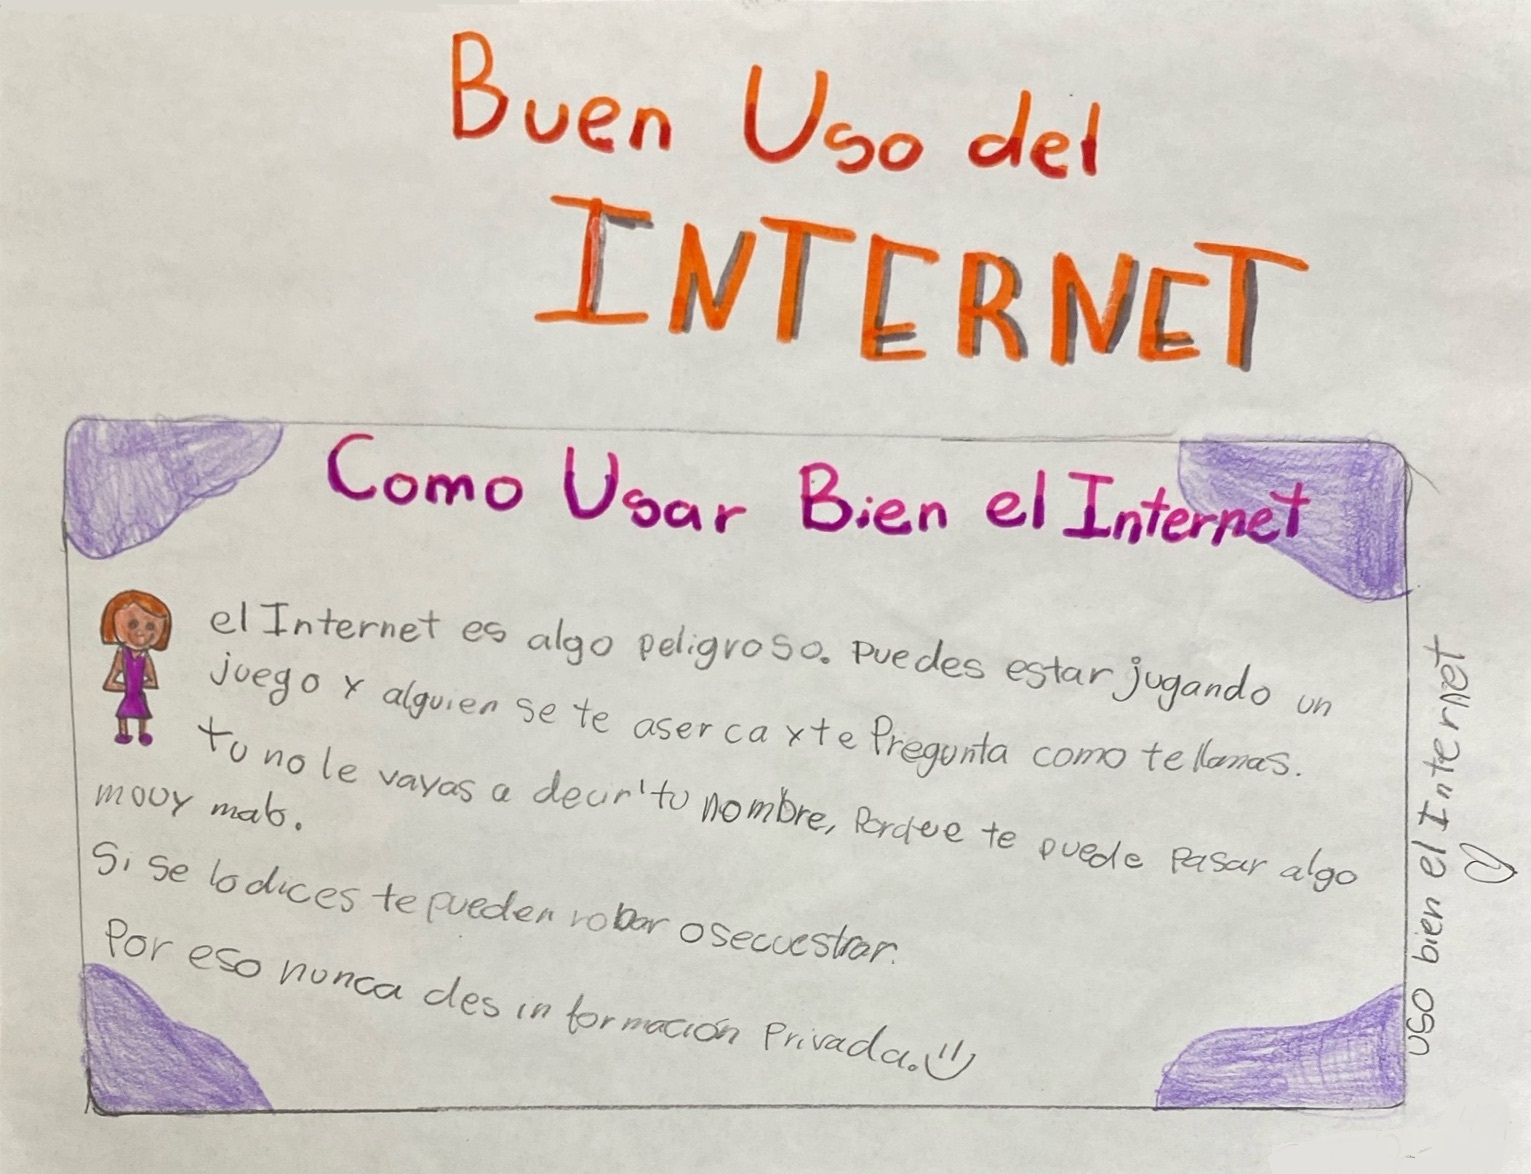 Buen Uso del
INTERNET
Como Usar Bien el Internet
el Internet es algo peligroso. puedes estar jugando un
juego y alguien se te aserca y te Pregunta como te llamas.
tu no le vayas a decir tu nombre, Porque te puede pasar algo
mouy malo.
Si se lo dices te pueden robar o secuestrar.
Por eso nunca des información Privada.
uso bien el Internet